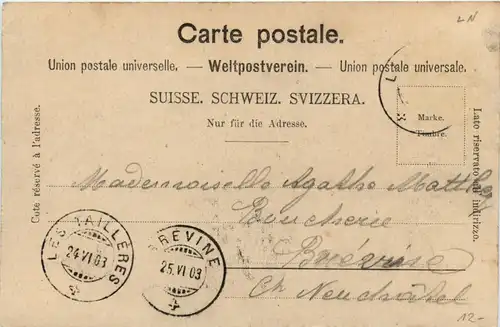 LN
Carte postale.
Union postale universelle. — Weltpostverein. — Union postale universale.
SUISSE. SCHWEIZ. SVIZZERA.
Nur für die Adresse.
Côté réservé à l'adresse.
Marke.
Timbre.
Lato riservato all' indirizzo.
Mademoiselle Agathe Matthey
Boucherie
Brévine
Ct. Neuchâtel
LES TAILLÈRES
24.VI.03
BRÉVINE
25.VI.03
12.-